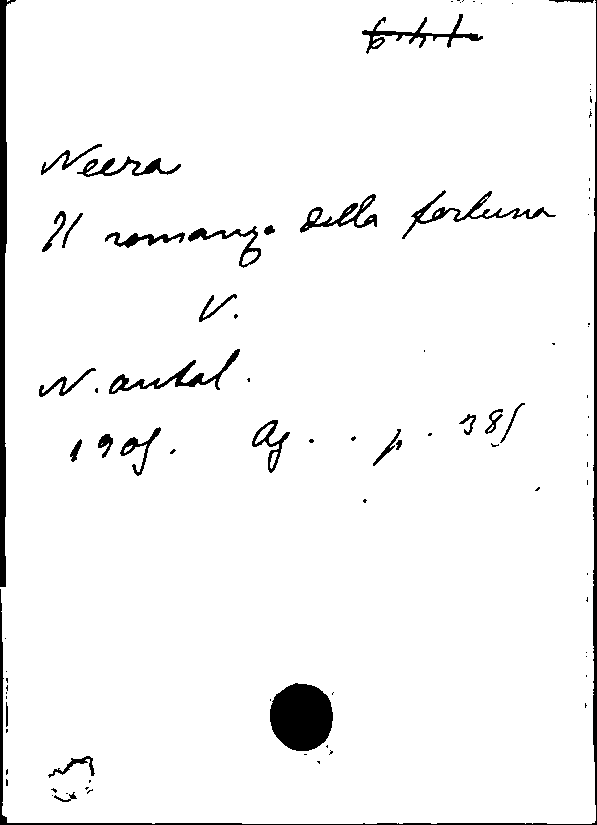 Neera
Il romanzo della fortuna
V.
N. antol.
1905. Ag. . p. 385